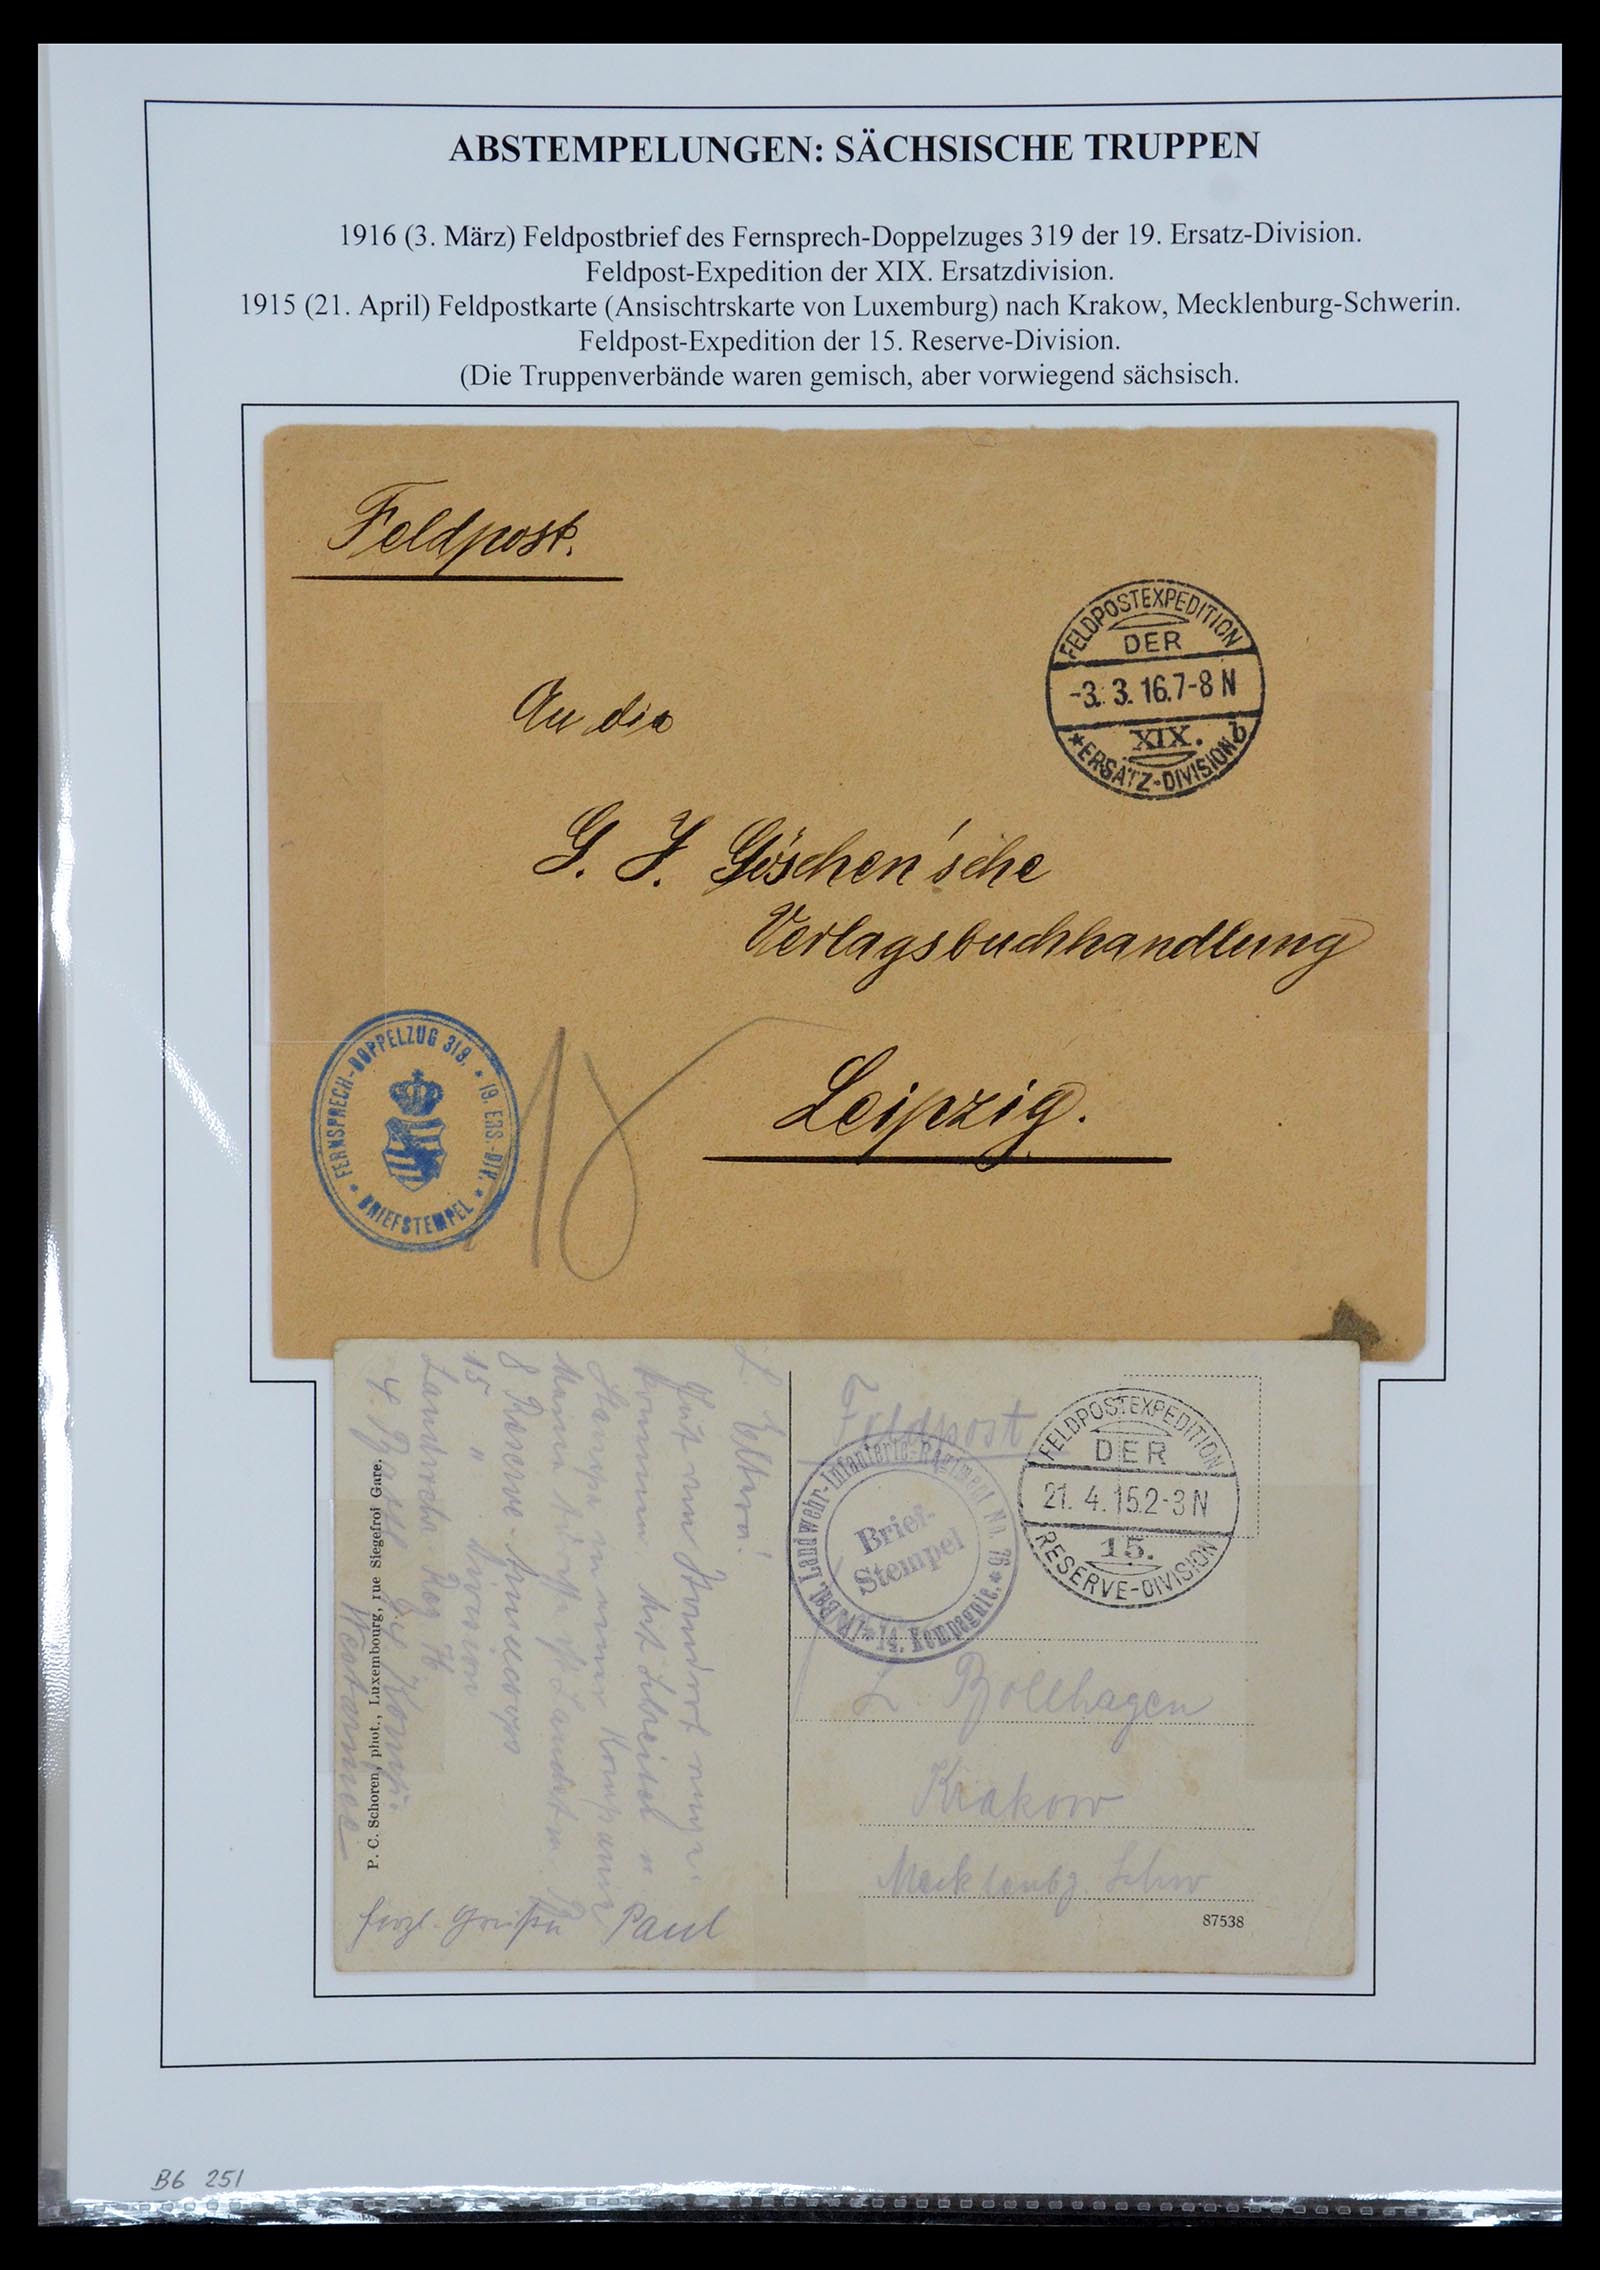 ABSTEMPELUNGEN: SÄCHSISCHE TRUPPEN
1916 (3. März) Feldpostbrief des Fernsprech-Doppelzuges 319 der 19. Ersatz-Division.
Feldpost-Expedition der XIX. Ersatzdivision.
1915 (21. April) Feldpostkarte (Ansischtrskarte von Luxemburg) nach Krakow, Mecklenburg-Schwerin.
Feldpost-Expedition der 15. Reserve-Division.
(Die Truppenverbände waren gemisch, aber vorwiegend sächsisch.
Feldpost.
FELDPOSTEXPEDITION
DER
-3. 3. 16. 7-8 N
XIX.
* ERSATZ-DIVISION b
An die
G. J. Göschen'sche
Verlagsbuchhandlung
Leipzig.
FERNSPRECH-DOPPELZUG 319. * 19. ERS.-DIV. *
* BRIEFSTEMPEL
L Eltern!
kommen
meiner Kompanie
8 Reserve-Armeecorps
15 " Division
Landwehr Reg 76
P. C. Schoren, phot., Luxembourg, rue Siegefroi Gare.
herzl. Grüße Paul
Feldpost
FELDPOSTEXPEDITION
DER
21. 4. 15. 2-3 N
15.
RESERVE-DIVISION
Landwehr-Infanterie-Regiment No. 76 *
Kompagnie.
Brief-
Stempel
Bollhagen
Krakow
Mecklenbg. Schw
87538
B6 251